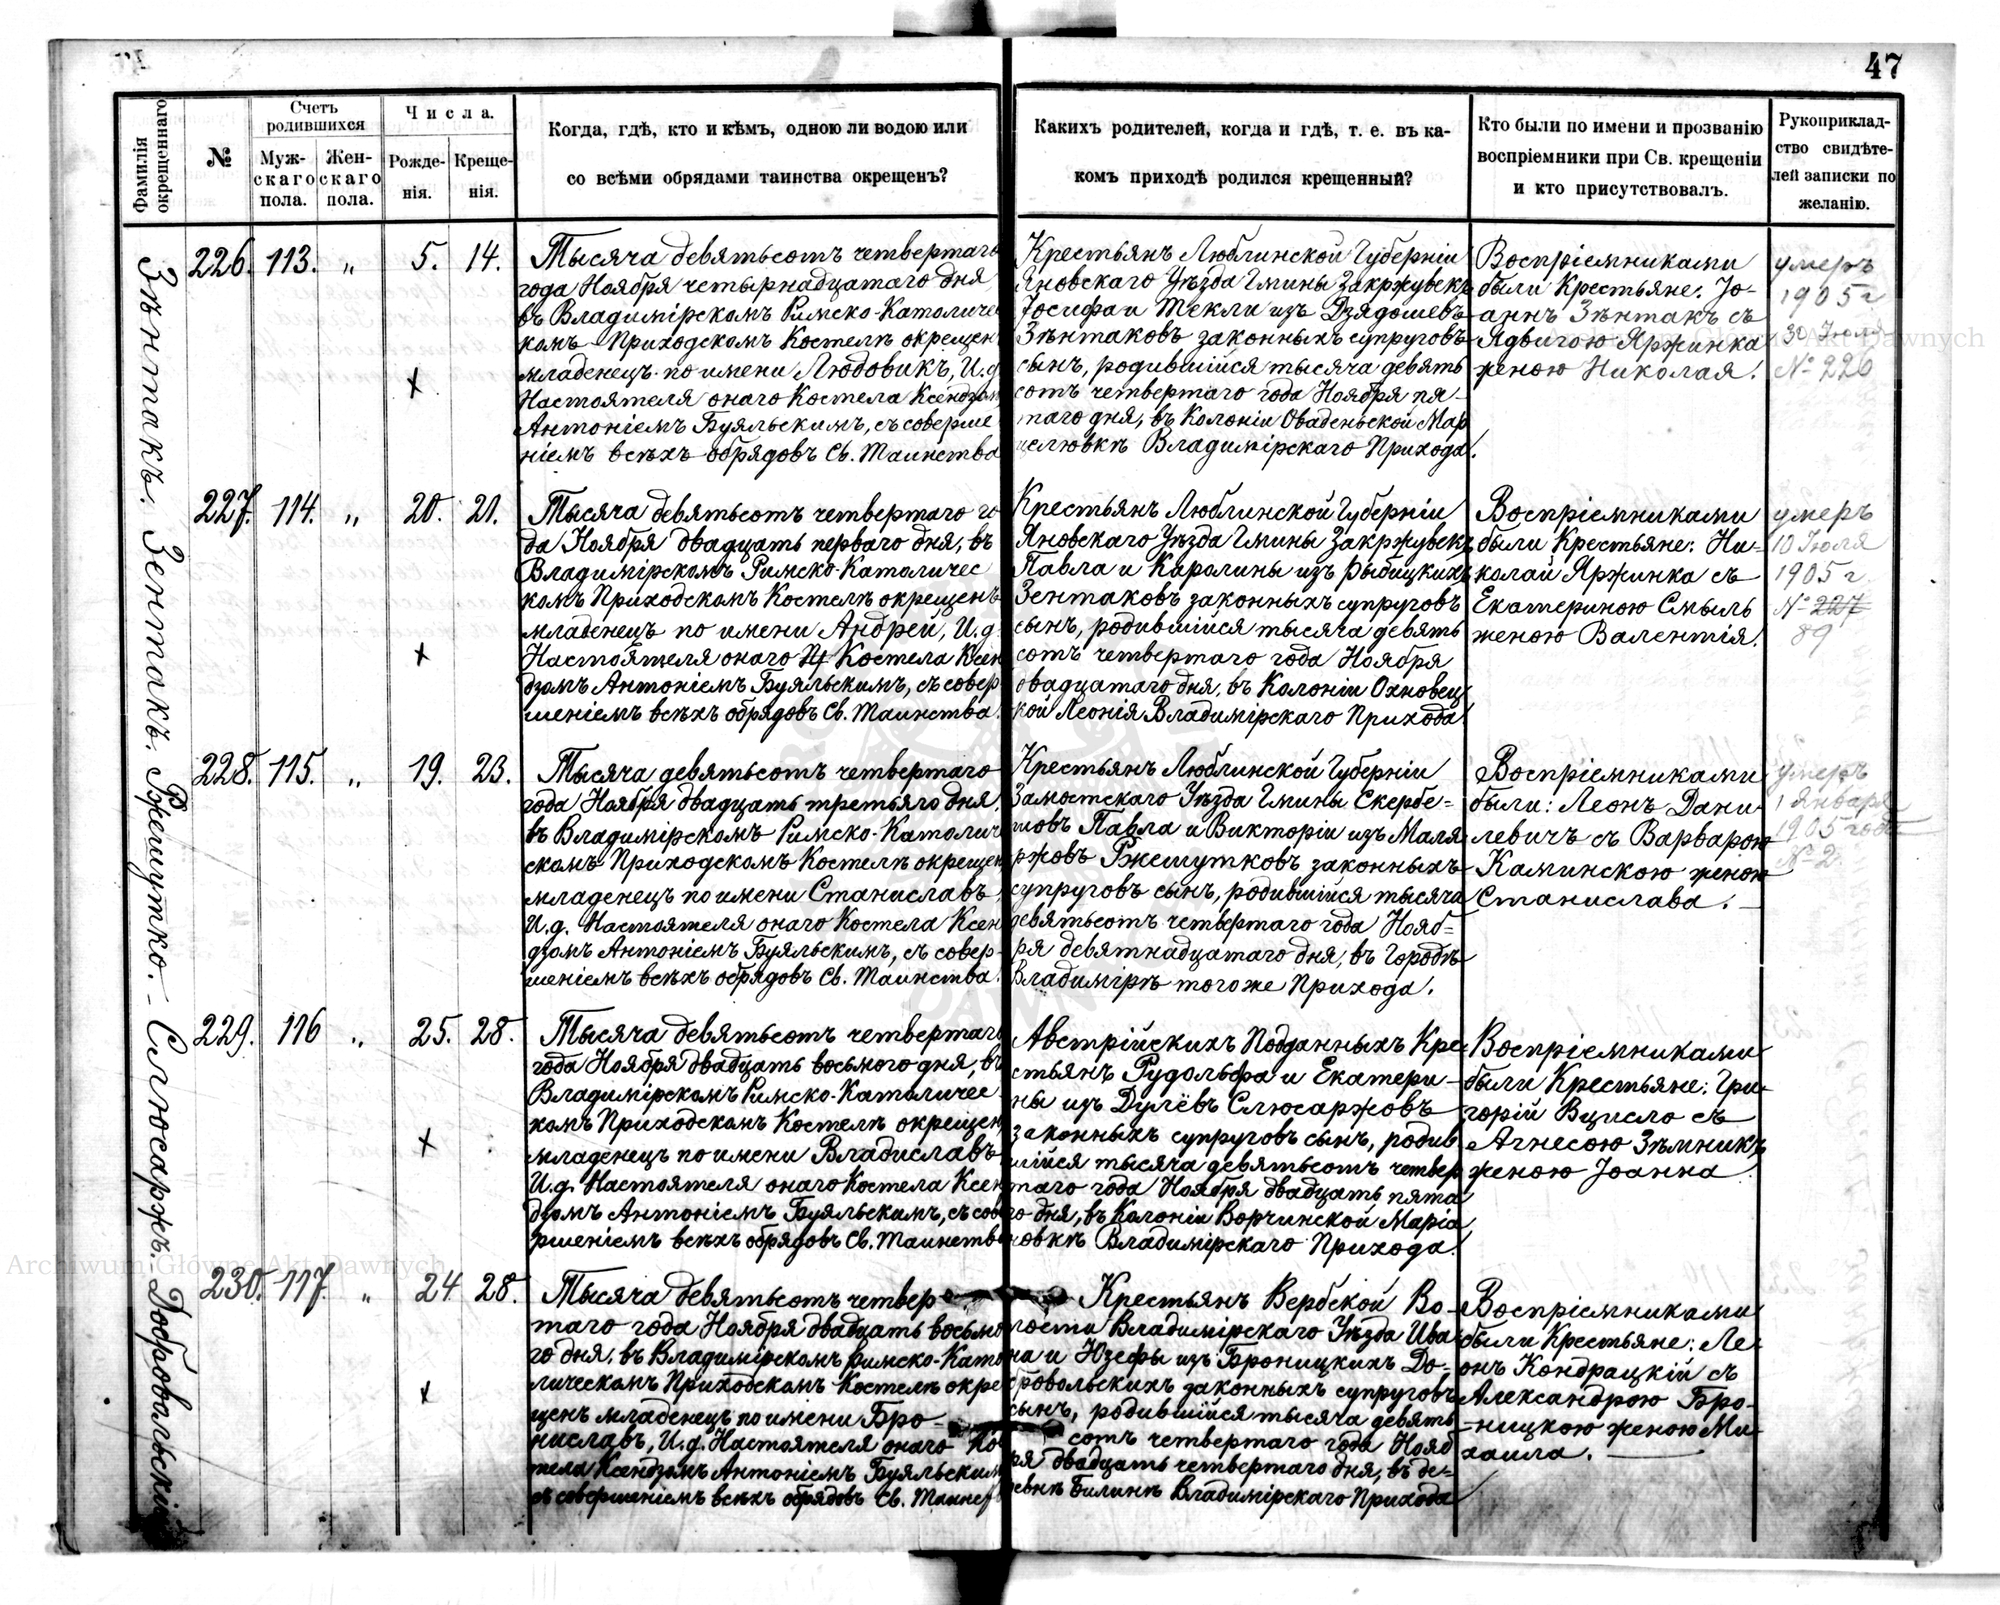 47
Фамилія
окрещеннаго
№
Счетъ
родившихся
Муж-
скаго
пола.
Жен-
скаго
пола.
Числа.
Рожде-
нія.
Креще-
нія.
Когда, гдѣ, кто и кѣмъ, одною ли водою или
со всѣми обрядами таинства окрещенъ?
Какихъ родителей, когда и гдѣ, т. е. въ ка-
комъ приходѣ родился крещенный?
Кто были по имени и прозванію
воспріемники при Св. крещеніи
и кто присутствовалъ.
Рукоприклад-
ство свидѣте-
лей записки по
желанію.
Зѣнтакъ.
226. 113. „ 5. 14.
Тысяча девятьсотъ четвертаго
года Ноября четырнадцатаго дня
въ Владимірскомъ Римско-Католичес
комъ Приходскомъ Костелѣ окрещенъ
младенецъ по имени Людовикъ, И.д.
Настоятеля онаго Костела Ксендзомъ
Антоніемъ Буяльскимъ, съ соверше
ніемъ всѣхъ обрядовъ Св. Таинства
Крестьянъ Люблинской Губерніи
Яновскаго Уѣзда Гмины Закржувекъ
Іосифа и Текли изъ Дзядошевъ
Зѣнтаковъ законныхъ супруговъ
сынъ, родившійся тысяча девять
сотъ четвертаго года Ноября пя-
таго дня, въ Колоніи Оваденьской Мар
целювкѣ Владимірскаго Прихода.
Воспріемниками
были Крестьяне: Іо-
аннъ Зѣнтакъ съ
Ядвигою Яржинка
женою Николая.
умеръ
1905 г
30 Іюля
№ 226
Зентакъ.
227. 114. „ 20. 21.
Тысяча девятьсотъ четвертаго го
да Ноября двадцать перваго дня, въ
Владимірскомъ Римско-Католичес
комъ Приходскомъ Костелѣ окрещенъ
младенецъ по имени Андрей, И.д.
Настоятеля онаго Костела Ксен
дзомъ Антоніемъ Буяльскимъ, съ совер
шеніемъ всѣхъ обрядовъ Св. Таинства.
Крестьянъ Люблинской Губерніи
Яновскаго Уѣзда Гмины Закржувекъ
Павла и Каролины изъ Рыбицкихъ
Зентаковъ законныхъ супруговъ
сынъ, родившійся тысяча девять
сотъ четвертаго года Ноября
двадцатаго дня, въ Колоніи Охновец
кой Леонія Владимірскаго Прихода.
Воспріемниками
были Крестьяне: Ни-
колай Яржинка съ
Екатериною Смыль
женою Валентія.
умеръ
10 Іюля
1905 г.
№ 227
89
Ржешутко.
228. 115. „ 19. 23.
Тысяча девятьсотъ четвертаго
года Ноября двадцать третьяго дня,
въ Владимірскомъ Римско-Католич
скомъ Приходскомъ Костелѣ окрещен
младенецъ по имени Станиславъ,
И.д. Настоятеля онаго Костела Ксен
дзомъ Антоніемъ Буяльскимъ, съ совер-
шеніемъ всѣхъ обрядовъ Св. Таинства.
Крестьянъ Люблинской Губерніи
Замостскаго Уѣзда Гмины Скербе-
шовъ Павла и Викторіи изъ Маля
ржовъ Ржешутковъ законныхъ
супруговъ сынъ, родившійся тысяча
девятьсотъ четвертаго года Нояб-
ря девятнадцатаго дня, въ Городѣ
Владимірѣ тогоже Прихода.
Воспріемниками
были: Леонъ Дани-
левичъ съ Варварою
Каминскою женою
Станислава.
умеръ
1 Января
1905 года
№ 2
Слюсаржъ.
229. 116 „ 25. 28.
Тысяча девятьсотъ четвертаго
года Ноября двадцать восьмого дня, въ
Владимірскомъ Римско-Католичес
комъ Приходскомъ Костелѣ окрещен
младенецъ по имени Владиславъ
И.д. Настоятеля онаго Костела Ксен
дзомъ Антоніемъ Буяльскимъ, съ сове
ршеніемъ всѣхъ обрядовъ Св. Таинства
Австрійскихъ Подданныхъ Кре
стьянъ Рудольфа и Екатери-
ны изъ Дулёвъ Слюсаржовъ
законныхъ супруговъ сынъ, родив
шійся тысяча девятьсотъ четвер
таго года Ноября двадцать пята
го дня, въ Колоніи Ворчинской Маріа
новкѣ Владимірскаго Прихода.
Воспріемниками
были Крестьяне: Гри-
горій Вцисло съ
Агнесою Зѣмникъ
женою Іоанна
Добровольскій
230. 117. „ 24 28.
Тысяча девятьсотъ четвер
таго года Ноября двадцать восьмо
го дня, въ Владимірскомъ Римско-Като
лическомъ Приходскомъ Костелѣ окре
щенъ младенецъ по имени Бро-
ниславъ, И.д. Настоятеля онаго Кос
тела Ксендзомъ Антоніемъ Буяльским
съ совершеніемъ всѣхъ обрядовъ Св. Таинст
Крестьянъ Вербской Во-
лости Владимірскаго Уѣзда Ива
на и Юзефы изъ Броницкихъ До-
бровольскихъ законныхъ супруговъ
сынъ, родившійся тысяча девять
сотъ четвертаго года Нояб
ря двадцать четвертаго дня, въ де-
ревнѣ Билинѣ Владимірскаго Прихода
Воспріемниками
были Крестьяне: Ле-
онъ Кондрацкій съ
Александрою Бро-
ницкою женою Ми-
хаила.
Archiwum Główne Akt Dawnych
Archiwum Główne Akt Dawnych